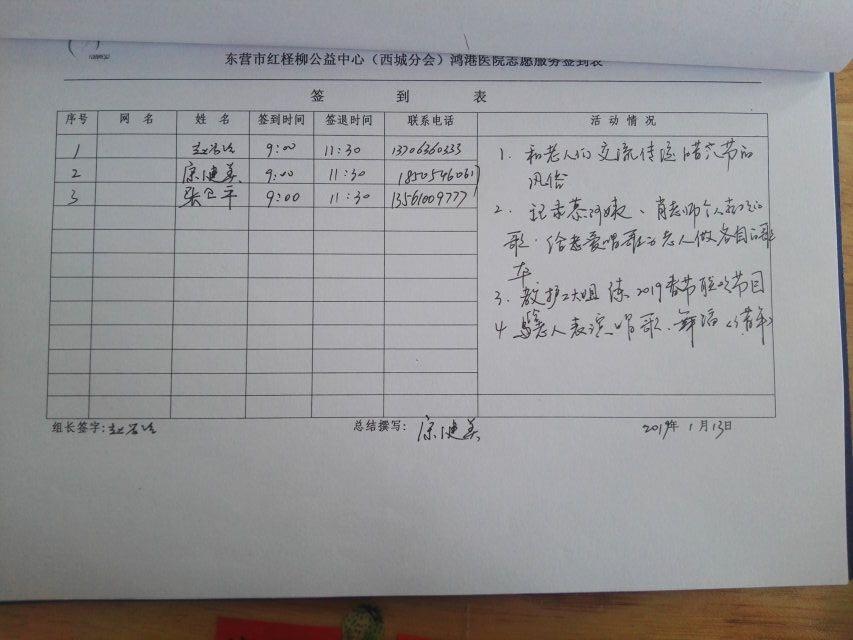 东营市红柽柳公益中心（西城分会）鸿港医院志愿服务签到表
签 到 表
序号 网 名 姓 名 签到时间 签退时间 联系电话 活 动 情 况
1 9:00 11:30 13706360333
2 康健美 9:00 11:30 18505460617
3 张卫平 9:00 11:30 13561009777
1. 和老人们交流传送腊八节的
风俗
2. 记录慕阿姨、肖老师个人
歌.给老爱唱歌的老人做各自的歌
本
3. 教护工大姐练2019春节联欢节目
4 老人表演唱歌、舞蹈
组长签字: 总结撰写: 康健美 2019年1月13日